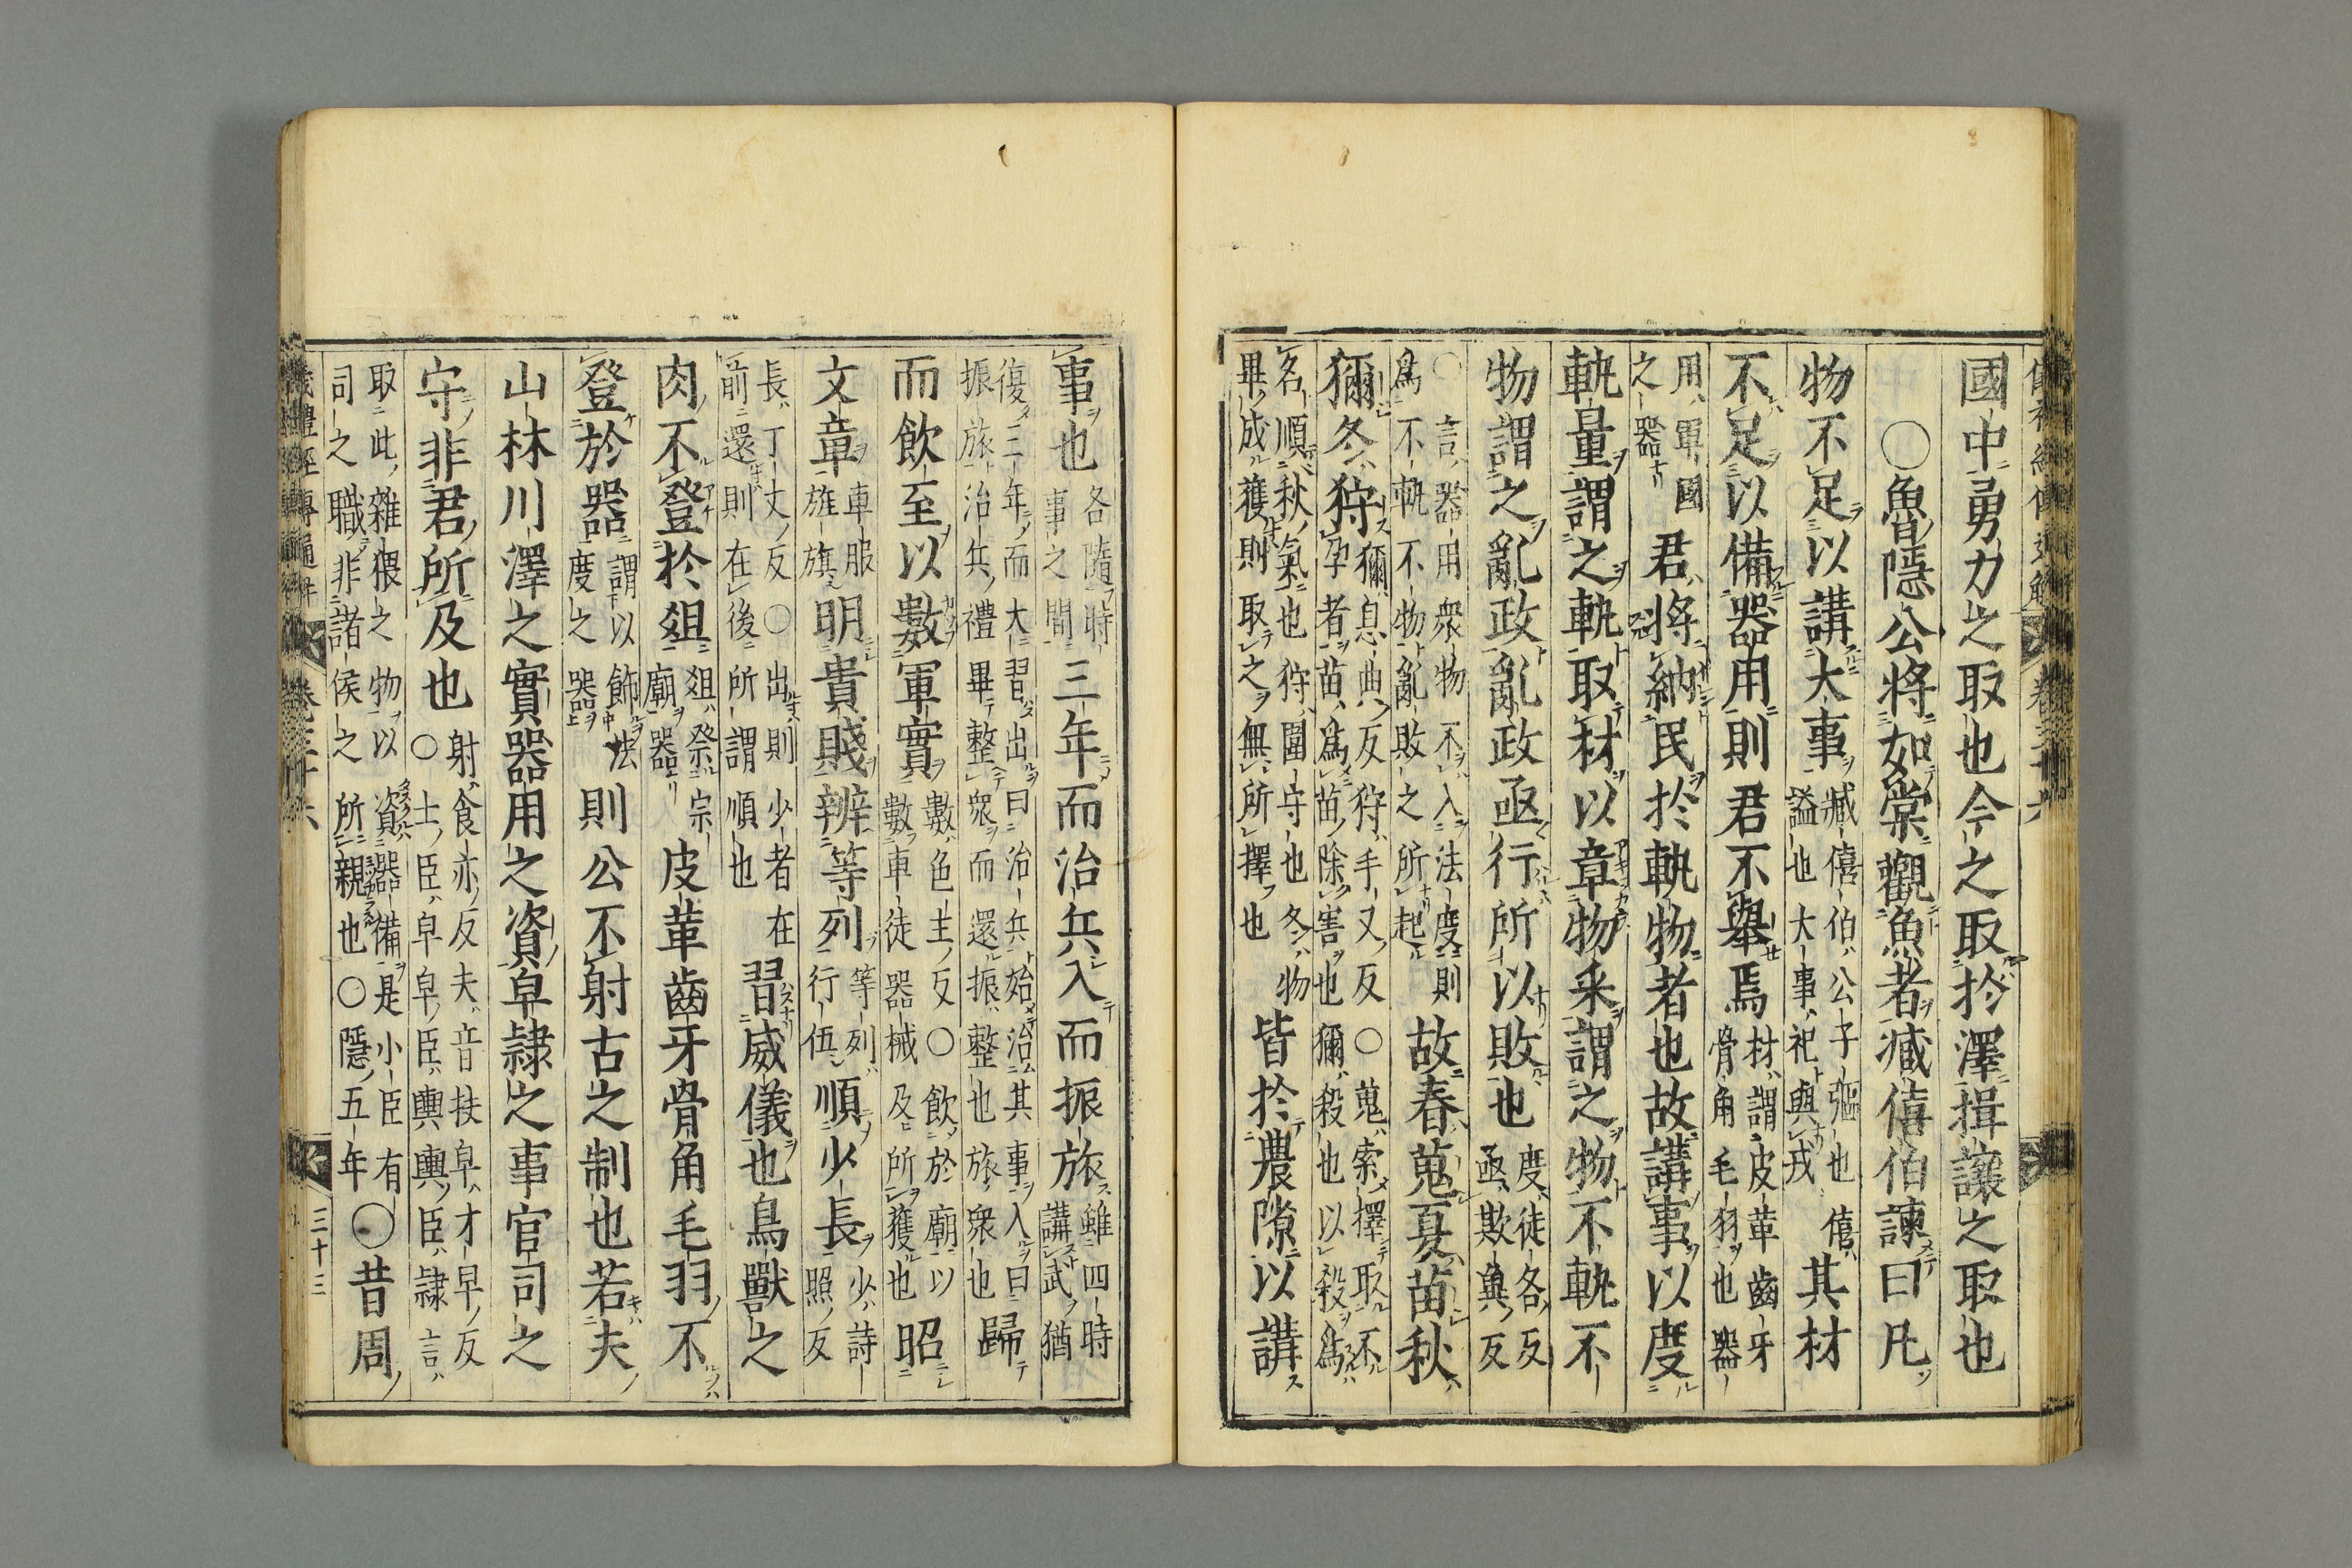 國中勇力之取也今之取於澤揖讓之取也
○魯隱公將如棠觀魚者臧僖伯諫曰凡
物不足以講大事臧僖伯公子彄也僖謚也大事祀與戎其材
不足以備器用則君不舉焉材謂皮革齒牙骨角毛羽也器
用軍國之器君將納民於軌物者也故講事以度
軌量謂之軌取材以章物采謂之物不軌不
物謂之亂政亂政亟行所以敗也度徒各反亟欺冀反
○言器用衆物不入法度則為不軌不物亂敗之所起故春蒐夏苗秋
獮冬狩獮息曲反狩手又反○蒐索擇取不孕者苗為苗除害也獮殺也以殺為
名順秋氣也狩圍守也冬物畢成獲則取之無所擇也皆於農隙以講
事也各隨時事之間三年而治兵入而振旅雖四時講武猶
復三年而大習出曰治兵始治其事入曰振旅治兵禮畢整衆而還振整也旅衆也歸
而飲至以數軍實數色主反○飲於廟以數車徒器械及所獲也昭
文章車服旌旗明貴賤辨等列等列行伍順少長少詩照反
長丁丈反○出則少者在前還則在後所謂順也習威儀也鳥獸之
肉不登於俎俎祭宗廟器皮革齒牙骨角毛羽不
登於器謂以飾法度之器則公不射古之制也若夫
山林川澤之實器用之資皁隷之事官司之
守非君所及也射食亦反夫音扶皁才早反○士臣皁皁臣輿輿臣隷言
取此雜猥之物以資器備是小臣有司之職非諸侯之所親也○隱五年○昔周
三十三